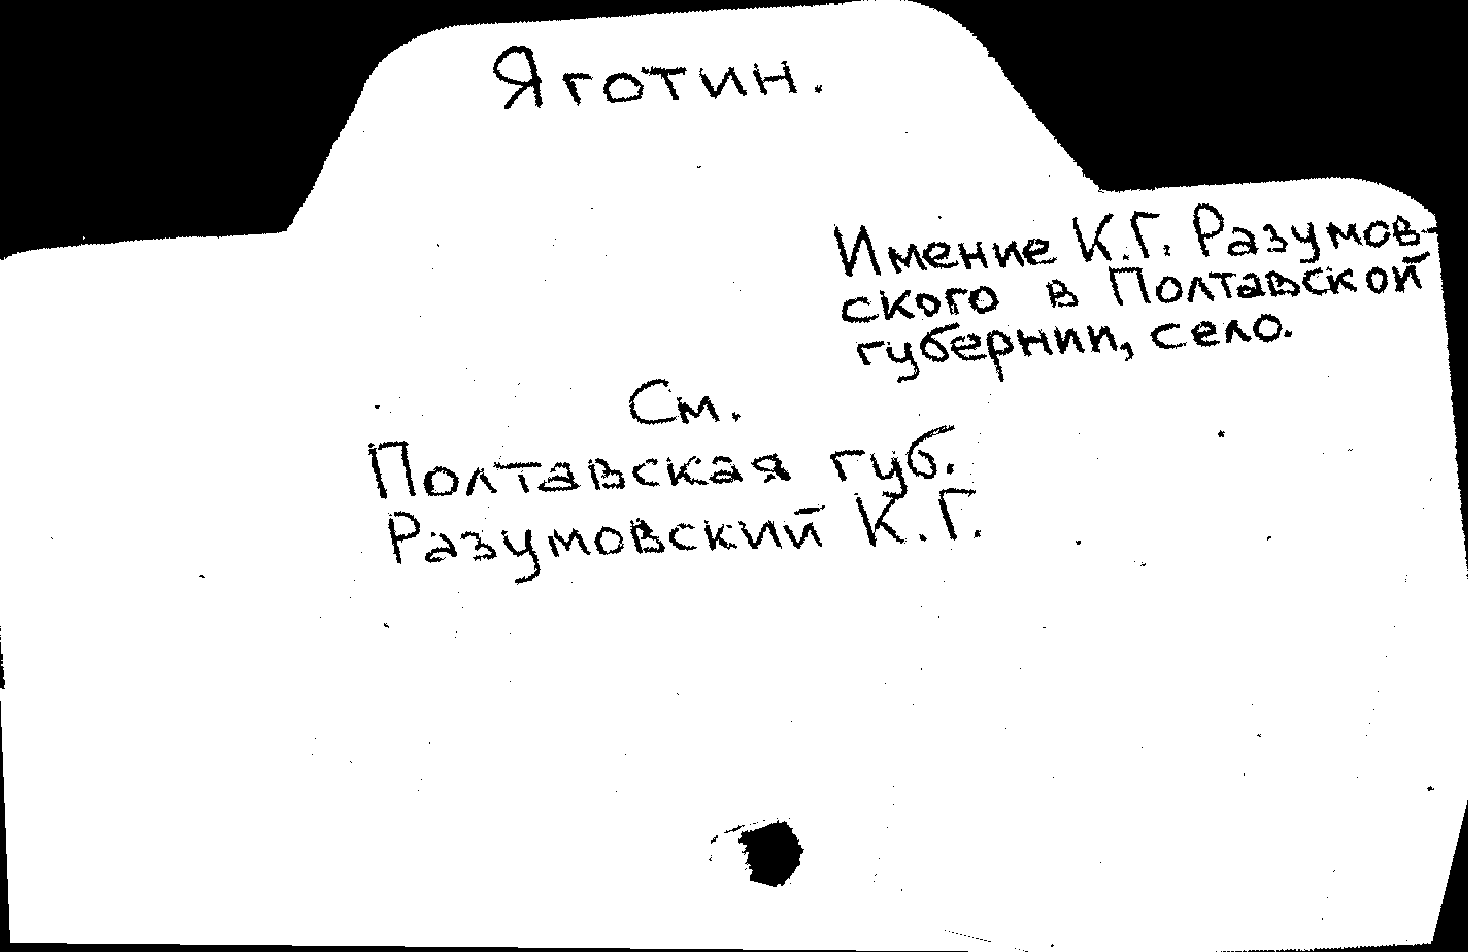 Яготин.
Имение К.Г. Разумов-
ского в Полтавской
губернии, село.
См.
Полтавская губ.
Разумовский К.Г.